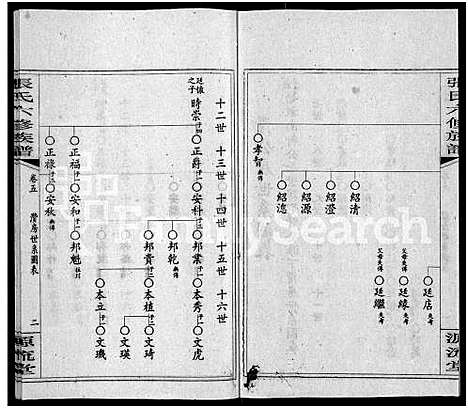 張氏六修族譜
源流堂
孝智 無傳
紹清
紹澄
紹源
紹德
廷店 失考
廷緣 父母失傳
廷繼 父母失傳 失考
十二世 十三世 十四世 十五世 十六世
廷懷之子 時崇
正爵 安科 邦業 本秀 文虎
邦乾 無傳
邦貴 本植 文琦
文瑛
正福 安和 邦魁 往川
本立 文璣
正祿 安秋 無傳
張氏六修族譜
卷五
濟房世系圖表
二
源流堂
FamilySearch